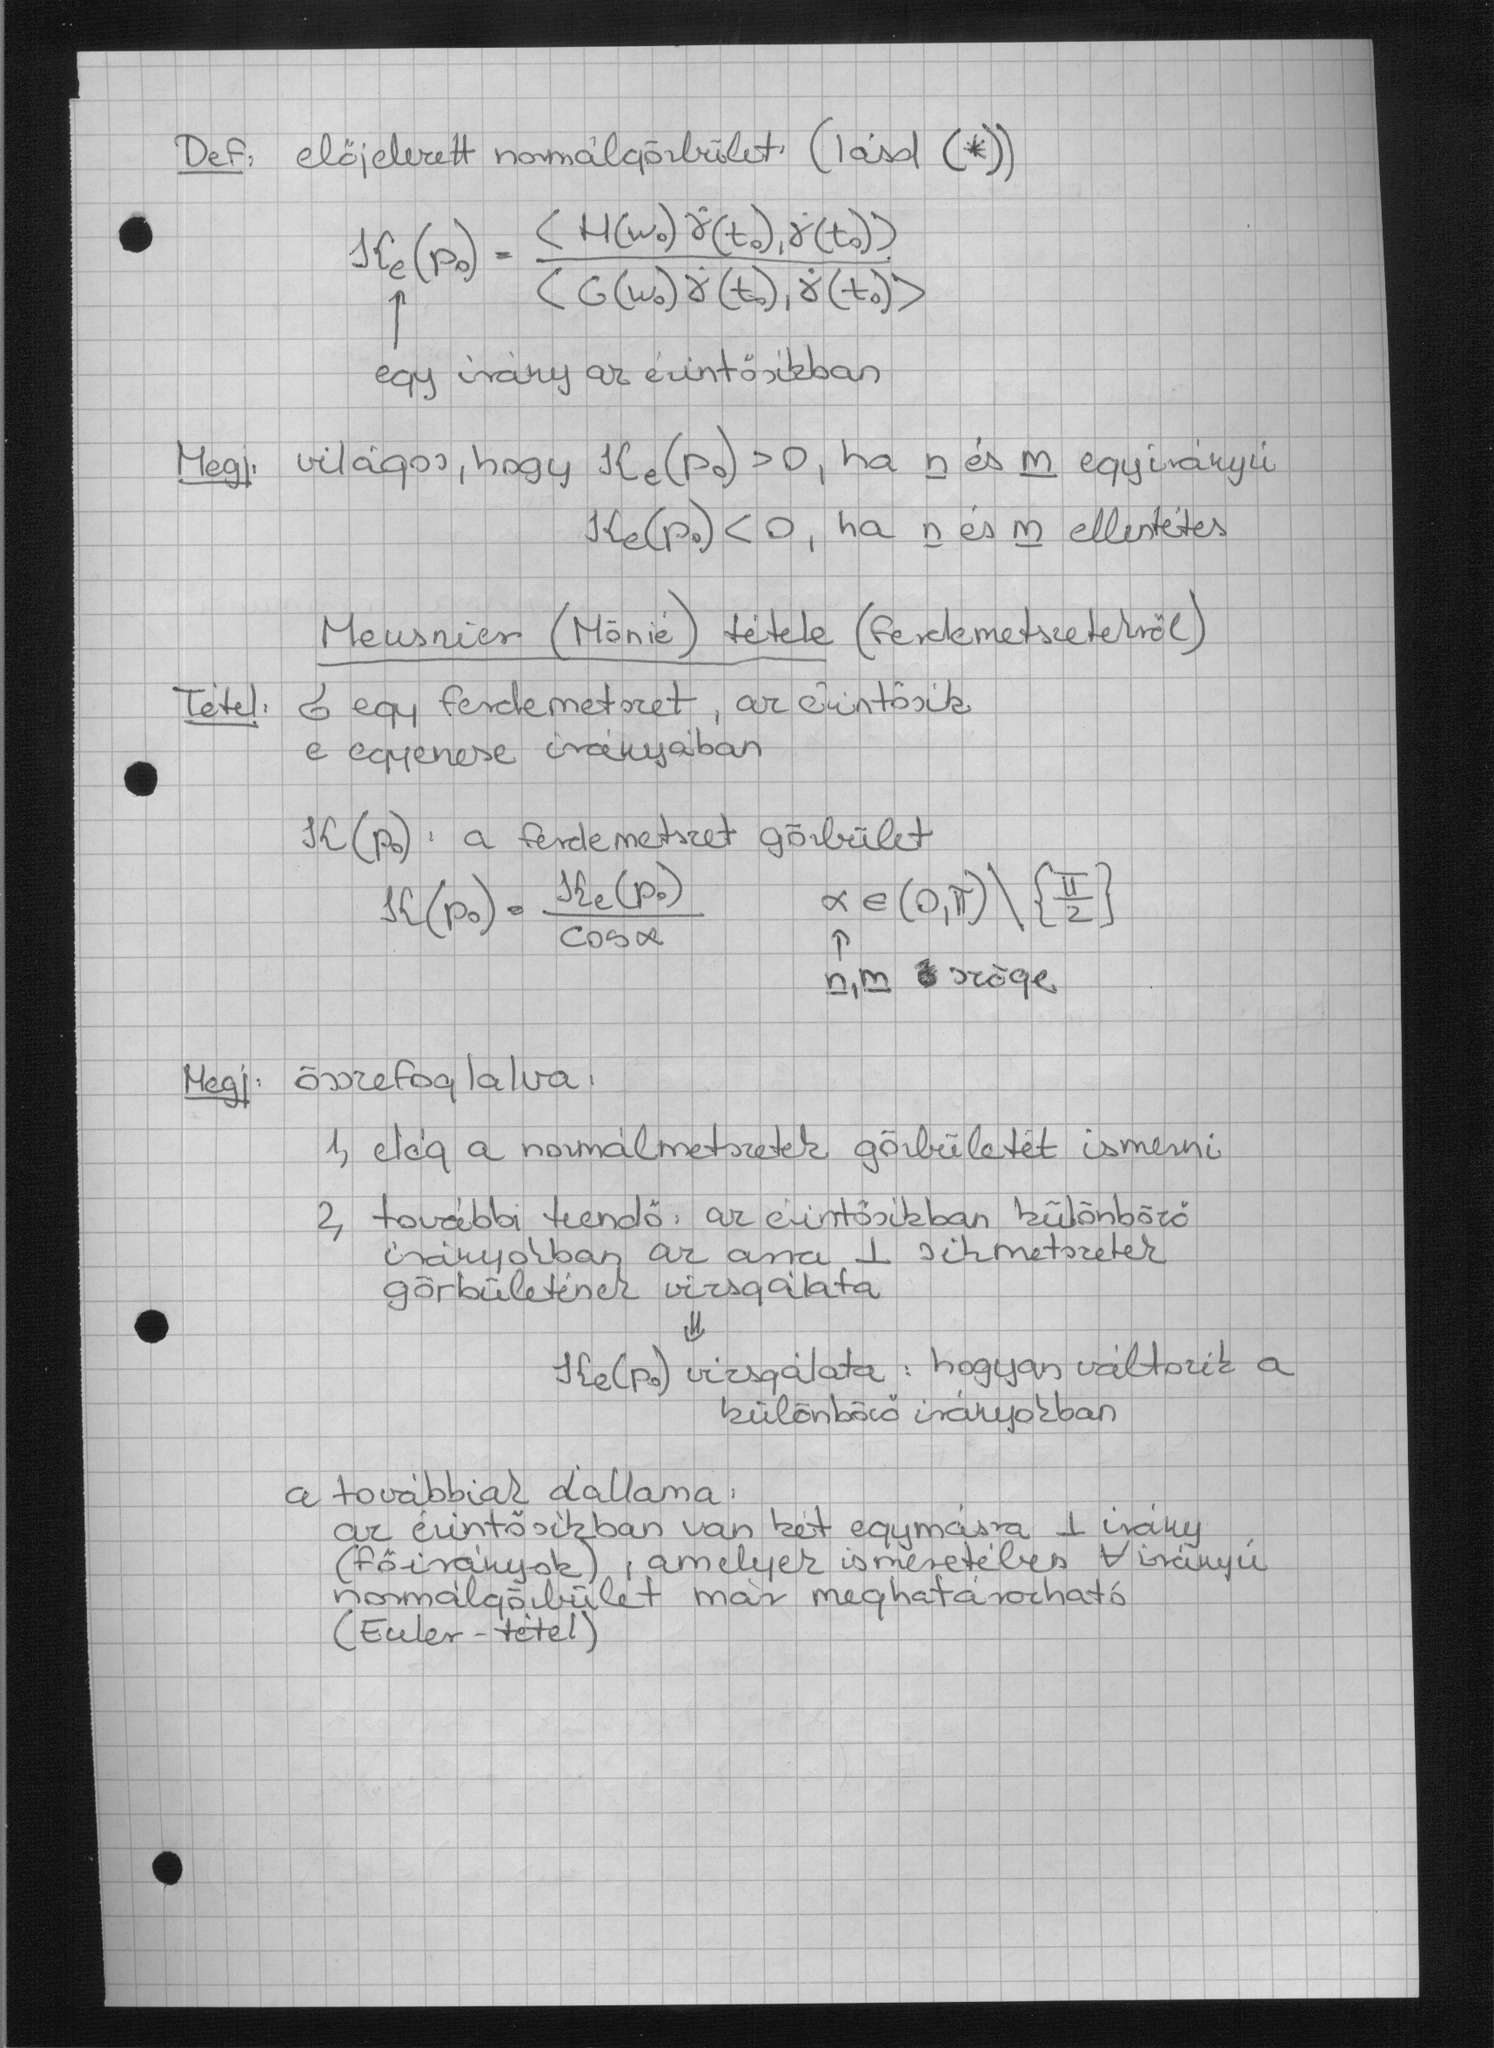 Def: előjelezett normálgörbület: (lásd (*))
K_e(p₀) = ⟨H(w₀)γ̇(t₀), γ̇(t₀)⟩ / ⟨G(w₀)γ̇(t₀), γ̇(t₀)⟩
↑
egy irány az érintősíkban
Megj: világos, hogy K_e(p₀) > 0, ha n és m egyirányú
K_e(p₀) < 0, ha n és m ellentétes
Meusnier (Mönié) tétele (ferdemetszetekről)
Tétel: σ egy ferdemetszet, az érintősík
e egyenese irányában
K(p₀): a ferdemetszet görbület
K(p₀) = K_e(p₀) / cos α    α ∈ (0, π) \ {π/2}
↑
n, m szöge
Megj: összefoglalva:
1, elég a normálmetszetek görbületét ismerni
2, további teendő: az érintősíkban különböző
irányokban az arra ⊥ síkmetszetek
görbületének vizsgálata
⇓
K_e(p₀) vizsgálata: hogyan változik a
különböző irányokban
a továbbiak dallama:
az érintősíkban van két egymásra ⊥ irány
(főirányok), amelyek ismeretében ∀ irányú
normálgörbület már meghatározható
(Euler-tétel)